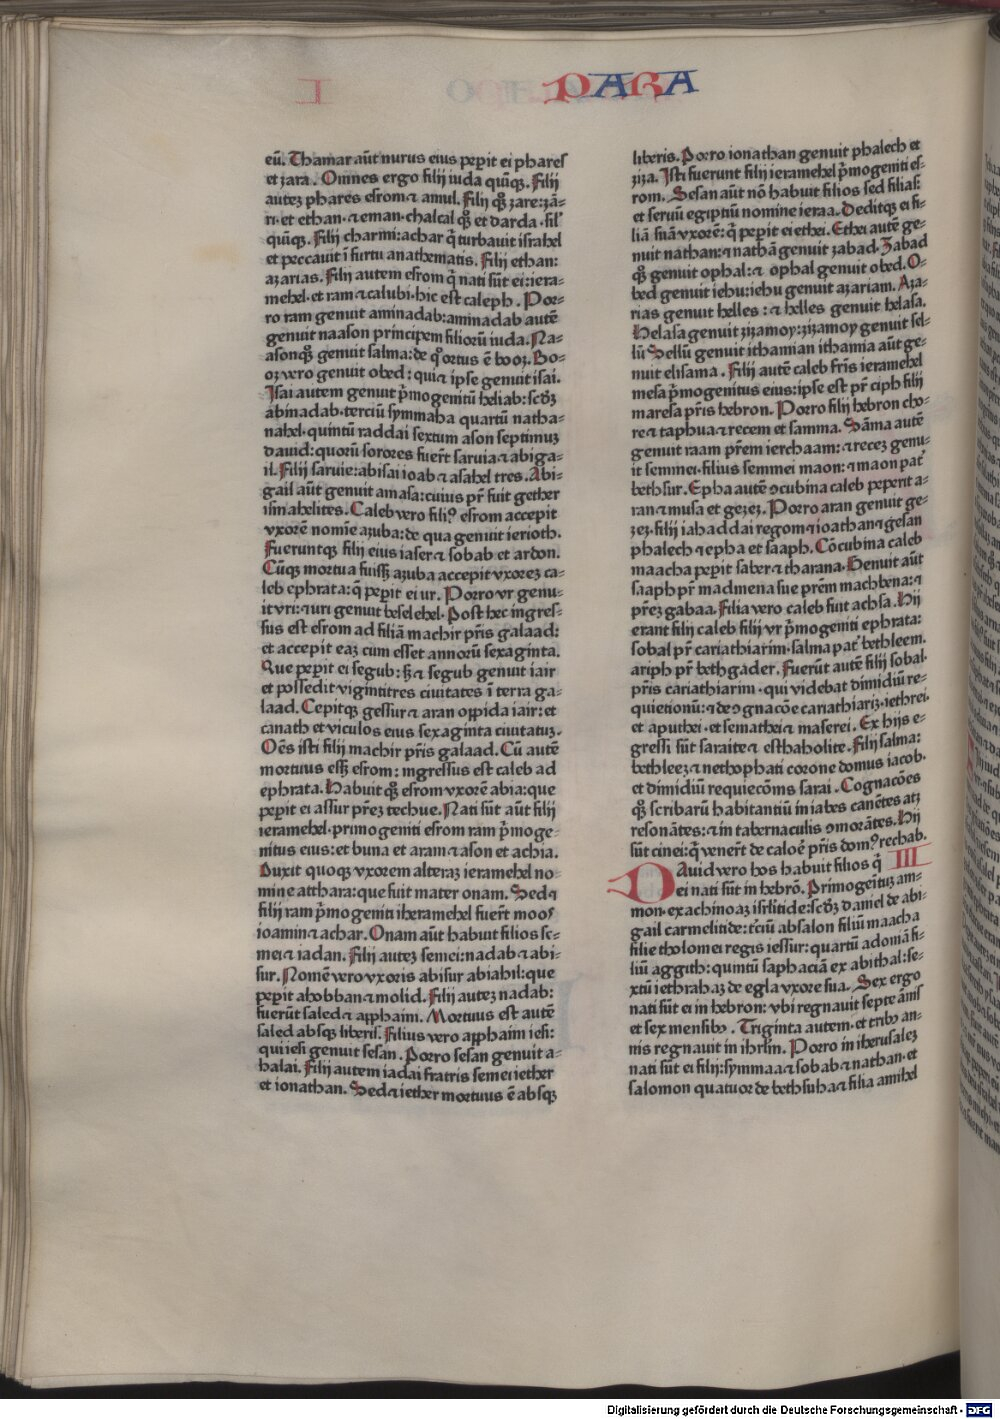 PARA
eū. Thamar aūt nurus eius peperit ei phares
et zara. Omnes ergo filij iuda quīqꝫ. Filij
autez phares esrom ⁊ amul. Filij qꝫ zare: zā-
ri· et ethan· ⁊ eman· chalcal qꝫ et darda· sil'
quīqꝫ. Filij charmi: achar q̄ turbauit israhel
et peccauit ī furtu anathematis. Filij ethan:
azarias. Filij autem esrom q̄ nati sūt ei: iera-
mehel· et ram ⁊ calubi· hic est caleph. Por-
ro ram genuit aminadab: aminadab autē
genuit naason principem filiorū iuda. Na-
asonqꝫ genuit salma: de q̊ ortus ē booz. Bo-
oz vero genuit obed: qui ⁊ ipse genuit isai.
Isai autem genuit p̄mogenitū heliab: scd̄ꝫ
abinadab· terciū symmaha quartū natha-
nahel· quintū raddai sextum ason septimuꝫ
dauid: quorū sorores fuer̄t saruia ⁊ abiga-
il. Filij saruie: abisai ioab ⁊ asahel tres. Abi-
gail aūt genuit amasa: cuius pr̄ fuit gether
ismahelites. Caleb vero filiꝰ esrom accepit
vxorē nomīe azuba: de qua genuit ierioth.
Fueruntqꝫ filij eius iaser ⁊ sobab et ardon.
Cūqꝫ mortua fuissꝫ azuba accepit vxorez ca-
leb ephrata: q̄ peꝑit ei ur. Porro vr genu-
it vri: ⁊ uri genuit beselehel. Post hec ingres-
sus est esrom ad filiā machir pr̄is galaad:
et accepit eaꝫ cum esset annorū sexaginta.
Que peperit ei segub: sꝫ ⁊ segub genuit iair
et possedit vigintitres ciuitates ī terra ga-
laad. Cepitqꝫ gessur ⁊ aran oppida iair: et
canath et viculos eius sexaginta ciuitatuꝫ.
Oēs isti filij machir pr̄is galaad. Cū autē
mortuus essꝫ esrom: ingressus est caleb ad
ephrata. Habuit qꝫ esrom vxorē abia: que
peperit ei assur pr̄ez techue. Nati sūt aūt filij
ieramehel· primogeniti esrom ram p̄moge-
nitus eius: et buna et aram ⁊ ason et achia.
Duxit quoqꝫ vxorem alteraꝫ ieramehel no-
mine atthara: que fuit mater onam. Sed ⁊
filij ram p̄mogeniti iheramehel fuer̄t moos
ioamin ⁊ achar. Onam aūt habuit filios se-
mei ⁊ iadan. Filij autez semei: nadab ⁊ abi-
sur. Nomē vero vxoris abisur abiahil: que
peperit ahobban ⁊ molid. Filij autez nadab:
fuerūt saled ⁊ apphaim. Mortuus est autē
saled absqꝫ liberis. Filius vero apphaim iesi:
qui iesi genuit sesan. Porro sesan genuit a-
halai. Filij autem iadai fratris semei iether
et ionathan. Sed ⁊ iether mortuus ē absqꝫ
liberis. Porro ionathan genuit phalech et
ziza. Isti fuerunt filij ieramehel p̄mogeniti es-
rom. Sesan aūt nō habuit filios sed filias:
et seruū egiptiū nomine ieraa. Deditqꝫ ei fi-
liā suā vxorē: q̄ peperit ei ethei. Ethei autē ge-
nuit nathan: ⁊ nathā genuit zabad. Zabad
qꝫ genuit ophal: ⁊ ophal genuit obed. O-
bed genuit iehu: iehu genuit azariam. Aza-
rias genuit helles: ⁊ helles genuit helasa.
Helasa genuit zizamoy: zizamoy genuit sel-
lū Sellū genuit ithamian ithamia aūt ge-
nuit elisama. Filij autē caleb fr̄is ieramehel
mesa p̄mogenitus eius: ipse est pr̄ ciph filij
maresa pr̄is hebron. Porro filij hebron cho-
re ⁊ taphua ⁊ recem et samma. Sāma autē
genuit raam pr̄em ierchaam: ⁊ recez genu-
it semmei· filius semmei maon: ⁊ maon pat̄
bethsur. Epha autē ꝯcubina caleb peperit a-
ran ⁊ musa et gezez. Porro aran genuit ge-
zez· filij iahaddai regom ⁊ ioathan ⁊ gesan
phalech ⁊ epha et saaph. Cōcubina caleb
maacha peperit saber ⁊ tharana. Genuit aūt
saaph pr̄ madmena sue prēm machbena: ⁊
prēz gabaa. Filia vero caleb fuit achsa. Hij
erant filij caleb filij vr p̄mogeniti ephrata:
sobal pr̄ cariathiarim· salma pat̄ bethleem.
ariph pr̄ bethgader. Fuerūt autē filij sobal·
pr̄is cariathiarim· qui videbat dimidiū re-
quietionū: ⁊ de ꝯgnacōe cariathiariꝫ· iethrei·
et aputhei· et semathei ⁊ maserei. Ex hijs e-
gressi sūt saraite ⁊ esthaholite. Filij salma:
bethleeꝫ ⁊ nethophati corone domus iacob.
et dimidiū requiecōms sarai. Cognacōes
qꝫ scribarū habitantiū in iabes canētes atꝫ
resonātes: ⁊ in tabernaculis ꝯmorātes. Hij
sūt cinei: q̄ vener̄t de caloē pr̄is domꝰ rechab.
David vero hos habuit filios q̄ III
ei nati sūt in hebrō. Primogeītuꝫ am-
mon· ex achinoaꝫ isrl̄itide: scd̄ꝫ daniel de abi-
gail carmelitide: t̄ciū absalon filiū maacha
filie tholomei regis iessur: quartū adomā fi-
liū aggith: quintū saphaciā ex abithal: se-
xtū iethrahaꝫ de egla vxore sua. Sex ergo
nati sūt ei in hebron: vbi regnauit septē ānis
et sex mensibꝰ. Triginta autem· et tribꝰ an-
nis regnauit in ihrl̄m. Porro in iherusalez
nati sūt ei filij: symmaa ⁊ sobab ⁊ nathan· et
salomon quatuor de bethsuha ⁊ filia amihel
Digitalisierung gefördert durch die Deutsche Forschungsgemeinschaft - DFG